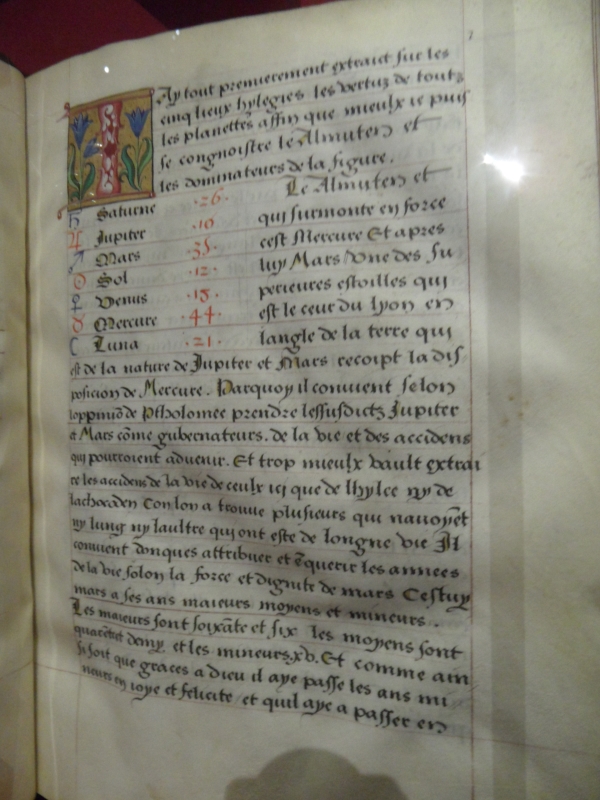 7
Jay tout premierement extraict sur les
cinq lieux hylegies les vertuz de toutz
les planettes affin que mieulx ie puis
se congnoistre le Almuten et
les dominateurs de la figure.
♄ Saturne ·26· Le Almuten et
♃ Jupiter ·10· qui surmonte en force
♂ Mars ·35· cest Mercure Et apres
☉ Sol ·12· luy Mars Une des su
♀ Venus ·15· perieures estoilles qui
☿ Mercure ·44· est le ceur du lyon en
☾ Luna ·21· langle de la terre qui
est de la nature de Jupiter et Mars recoipt la dis
posicion de Mercure. Parquoy il convient selon
loppiniō de Ptholomee prendre lessusdictz Jupiter
et Mars cōme gubernateurs. de la vie et des accidens
qui pourroient advenir. Et trop mieulx vault extrai
re les accidens de la vie de ceulx icy que de lhylec ny de
lachocaden Con lon a trouve plusieurs qui navoyēt
ny lung ny laultre qui ont este de longue vie Il
convient donques attribuer et ēquerir les annees
de la vie solon la force et dignite de mars Cestuy
mars a ses ans maieurs moyens et mineurs.
Les maieurs sont soixāte et six les moyens sont
quarēte et demy et les mineurs xv. Et comme ain
si soit que graces a dieu il aye passe les ans mi
neurs en ioye et felicite et quil aye a passer en